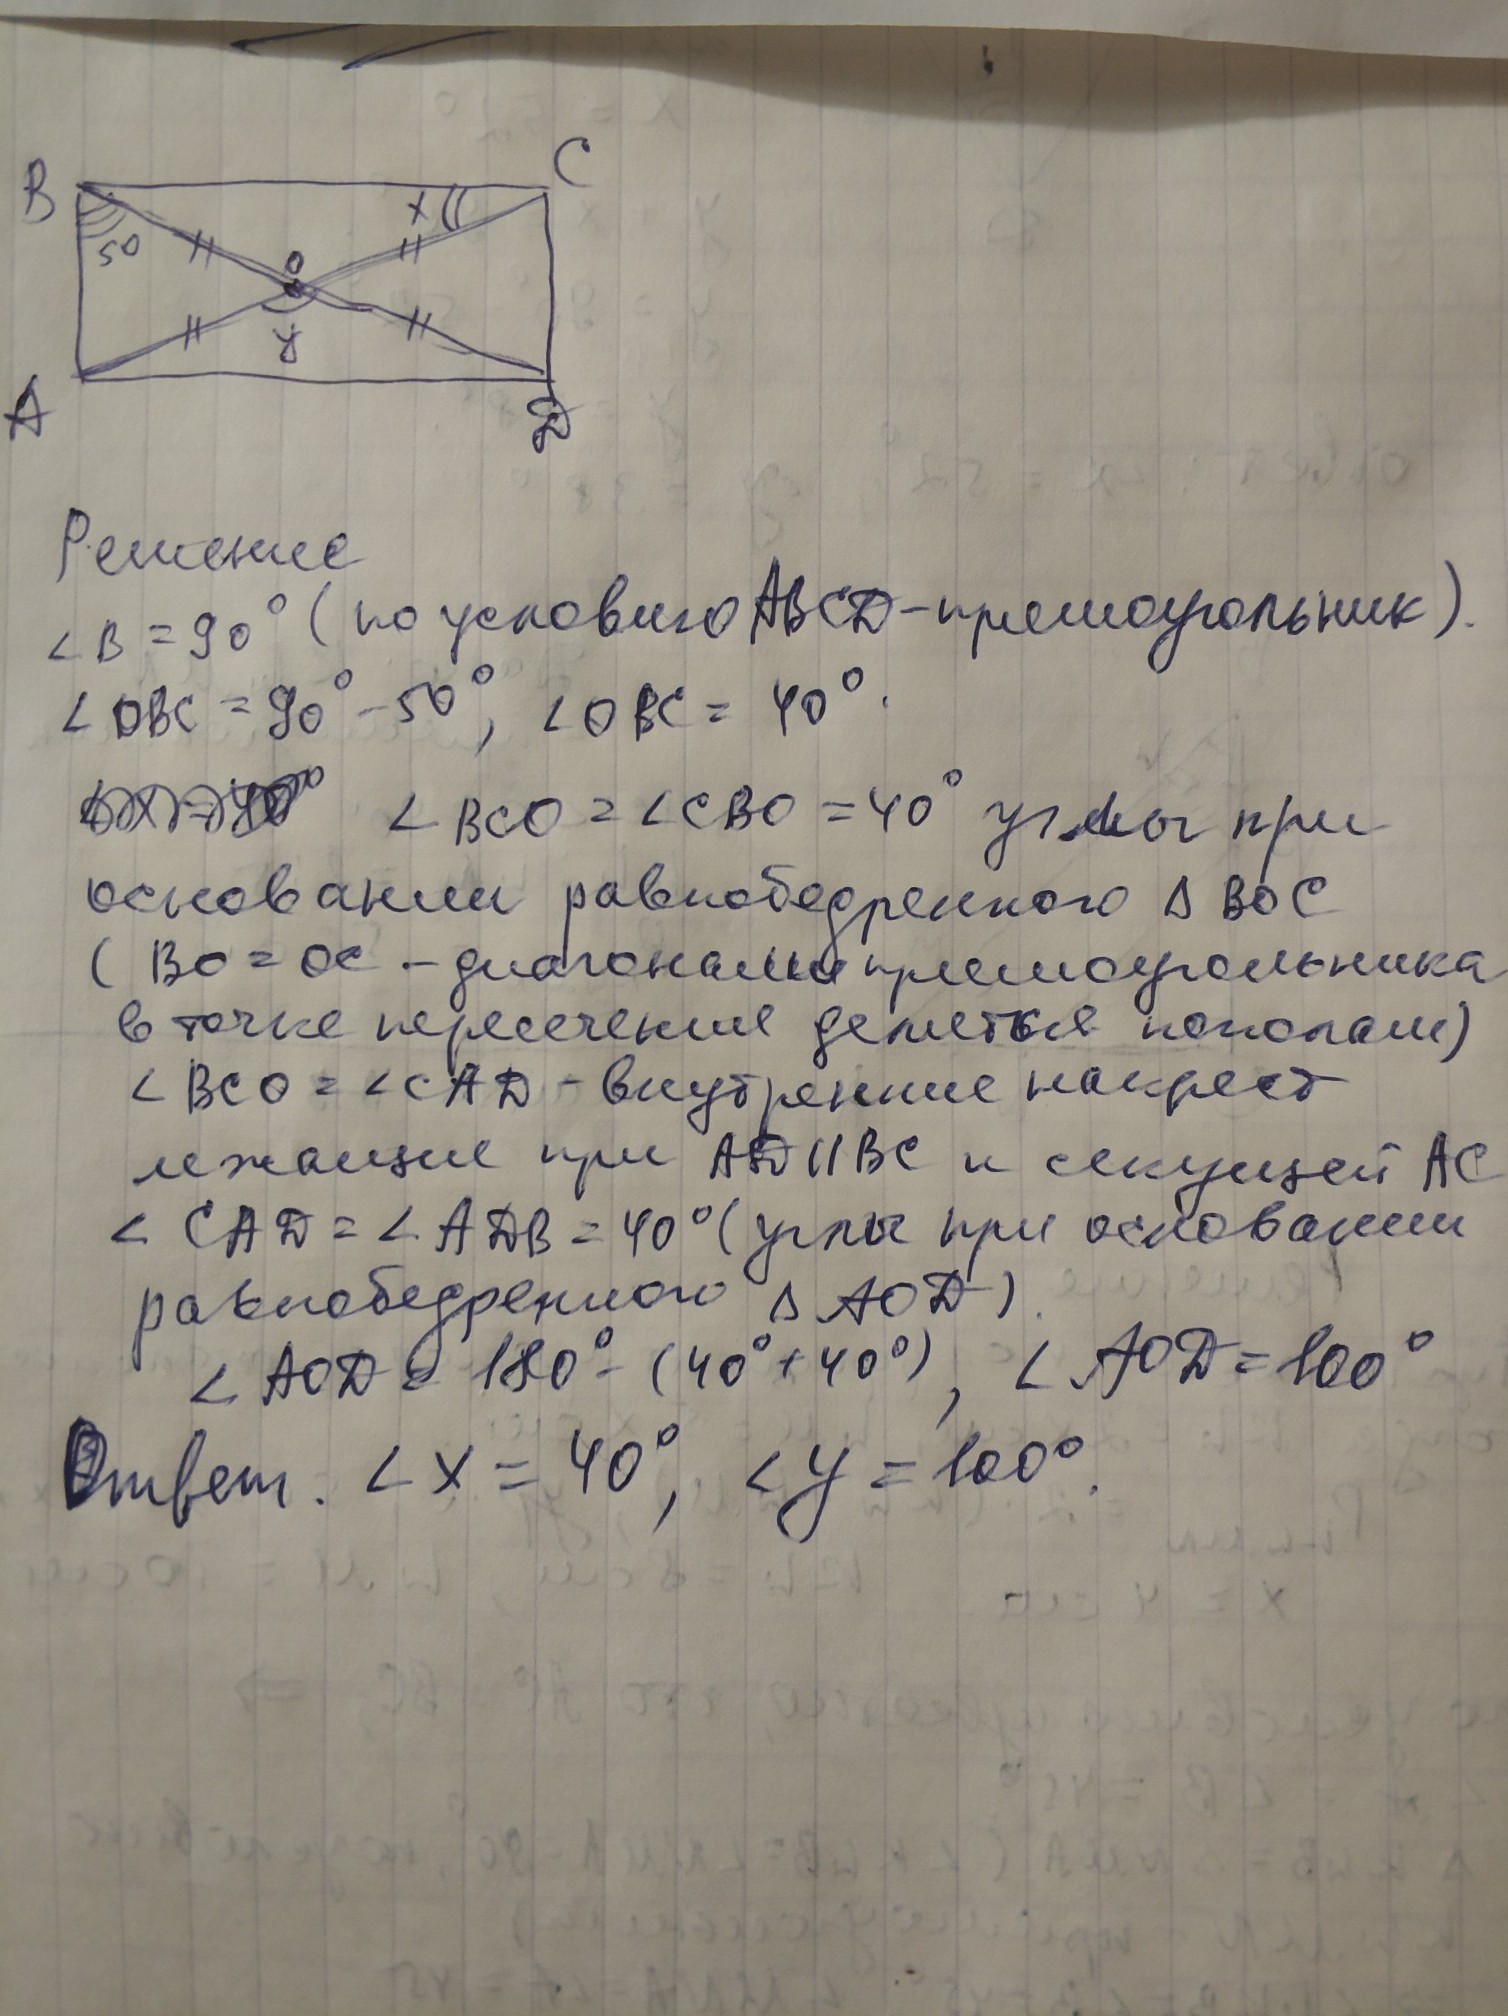 B
C
x
50
O
y
A
D
Решение
∠B = 90° (по условию ABCD - прямоугольник).
∠OBC = 90° - 50°, ∠OBC = 40°.
∠BCO = ∠CBO = 40° углы при
основании равнобедренного Δ BOC
(BO = OC - диагонали прямоугольника
в точке пересечения делятся пополам)
∠BCO = ∠CAD - внутренние накрест
лежащие при AD || BC и секущей AC
∠CAD = ∠ADB = 40° (углы при основании
равнобедренного Δ AOD).
∠AOD = 180° - (40° + 40°), ∠AOD = 100°
Ответ. ∠x = 40°, ∠y = 100°.